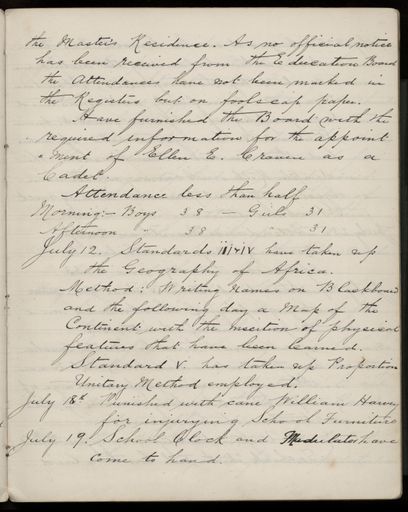 the Master's Residence. As no official notice
has been received from the Education Board
the Attendances have not been marked in
the Registers but on foolscap paper.
Have furnished the Board with the
required information for the appoint
-ment of Ellen E. Craven as a
Cadet.
Attendance less than half
Morning:- Boys 38 - Girls 31
Afternoon " 38 " 31
July 12. Standards have taken up
the Geography of Africa.
Method: Writing names on Blackboard
and the following day a Map of the
Continent with the insertion of physical
features that have been learned.
Standard V. has taken up Proportion
Unitary Method employed.
July 18th Punished with cane William Harvey
for injurying School Furniture
July 19. School Clock and Modulator have
come to hand.